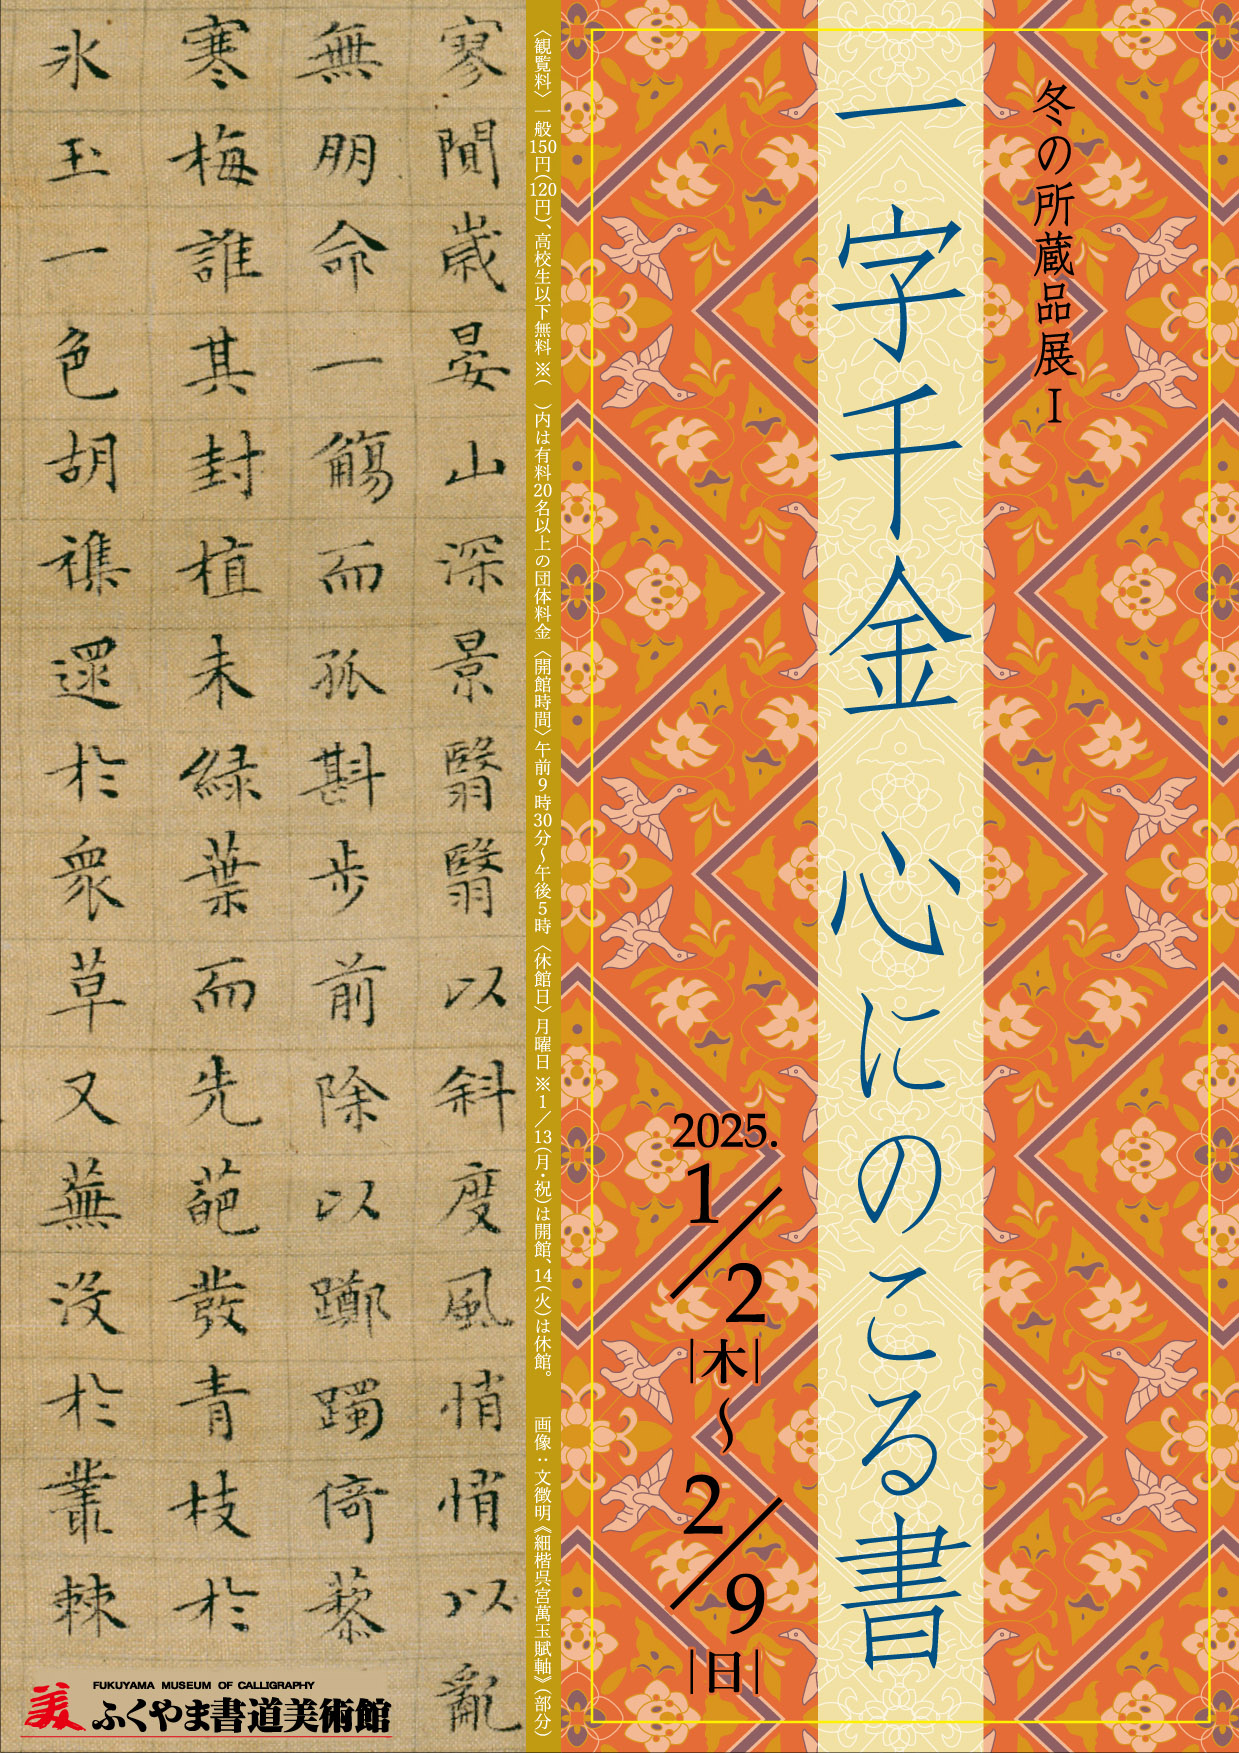 冬の所蔵品展Ⅰ
一字千金 心にのこる書
2025.
1/2
|木|
〜
2/9
|日|
〈観覧料〉一般150円(120円)、高校生以下無料 ※( )内は有料20名以上の団体料金 〈開館時間〉午前9時30分〜午後5時 〈休館日〉月曜日 ※1/13(月・祝)は開館、14(火)は休館。 画像：文徴明《細楷呉宮萬玉賦軸》(部分)
寥閴歳晏山深景翳翳以斜度風悄悄以亂
無朋命一觴而孤斟步前除以躑躅倚藜
寒梅誰其封植未緑葉而先葩發青枝於
氷玉一色胡襍遝於衆草又蕪没於叢棘
美
FUKUYAMA MUSEUM OF CALLIGRAPHY
ふくやま書道美術館